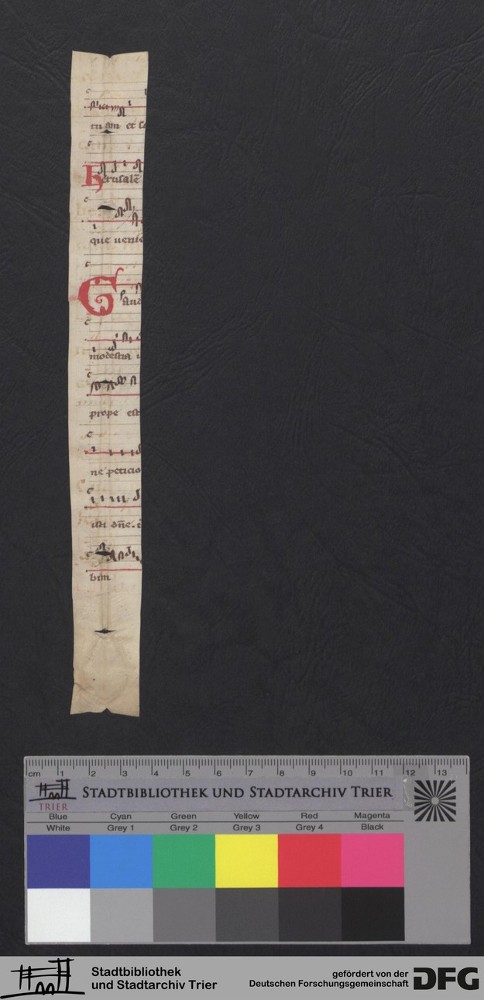 Jerusalē
que
Gau
modestia
prope est
ne peticio
bim
cm 1 2 3 4 5 6 7 8 9 10 11 12 13
TRIER
STADTBIBLIOTHEK UND STADTARCHIV TRIER
Blue Cyan Green Yellow Red Magenta
White Grey 1 Grey 2 Grey 3 Grey 4 Black
Stadtbibliothek
und Stadtarchiv Trier
gefördert von der
Deutschen Forschungsgemeinschaft
DFG